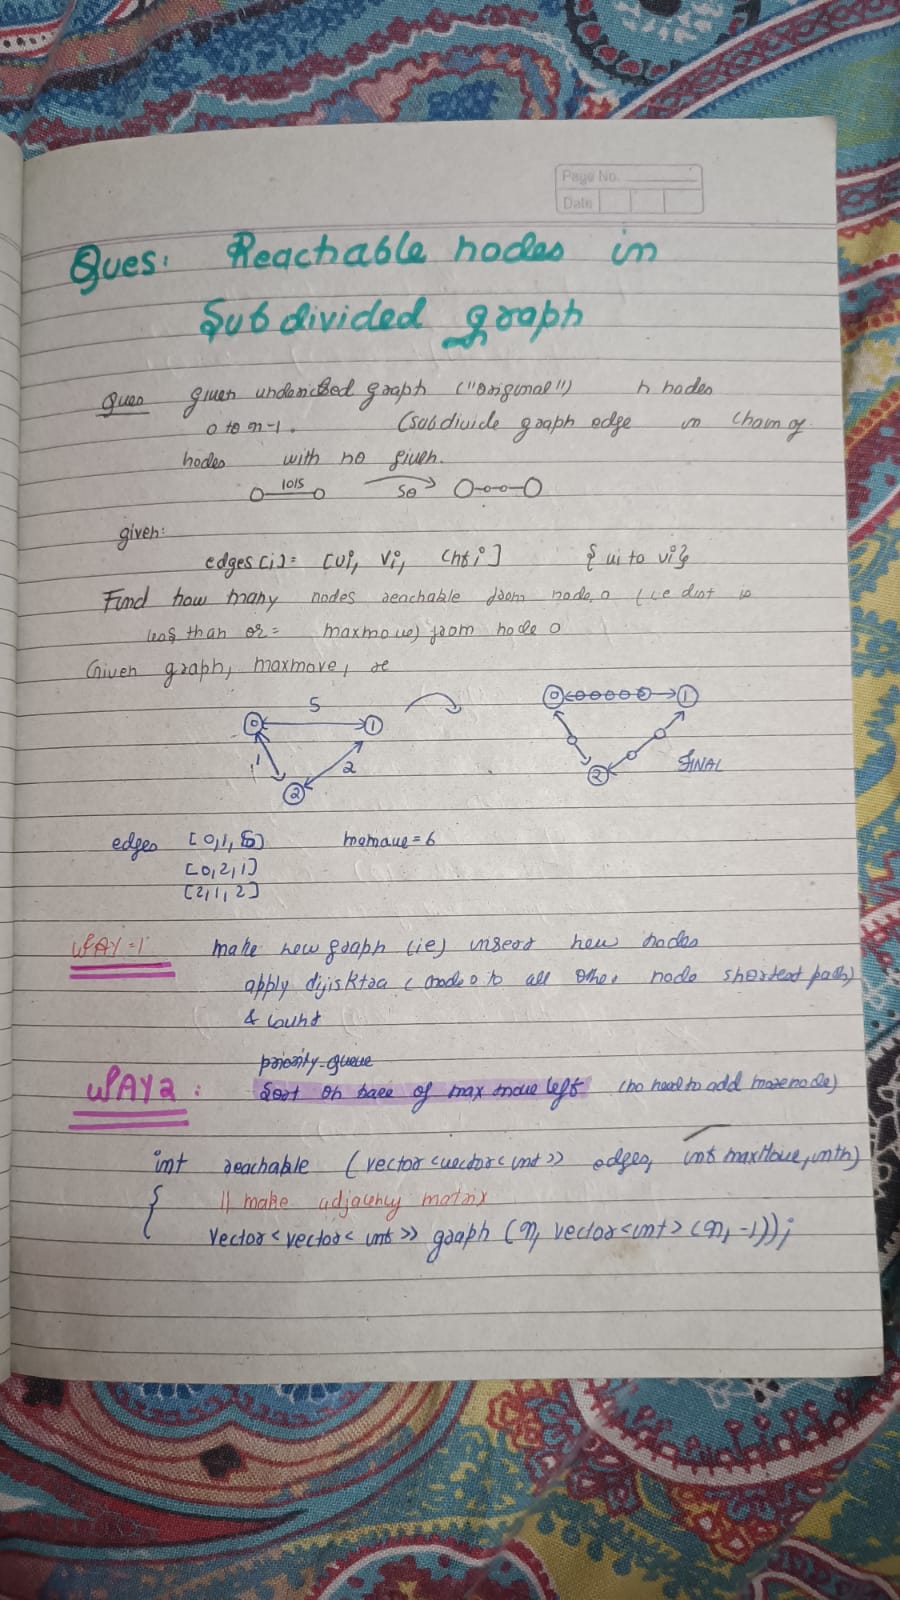 Page No.
Date
Ques: Reachable nodes in
Subdivided graph
Ques given undirected graph ("original") n nodes
0 to n-1. (subdivide graph edge in chain of
nodes with no given.
given:
edges[i] = [ui, vi, cnti] { ui to vi}
Find how many nodes reachable from node 0 (ie dist is
less than or = maxmove) from node 0
Given graph, maxmove, n
5
0 1
1 2
2
0 1
2
FINAL
edges [0,1,5] maxmove = 6
[0,2,1]
[2,1,2]
WAY-1 make new graph (ie) insert new nodes
apply dijisktra (node 0 to all other node shortest path)
& count
priority-queue
WAY 2: Sort on base of max move left (no need to add more node)
int reachable (vector<vector<int>> edges, int maxMove, int n)
{ // make adjacency matrix
vector<vector<int>> graph (n, vector<int>(n,-1));